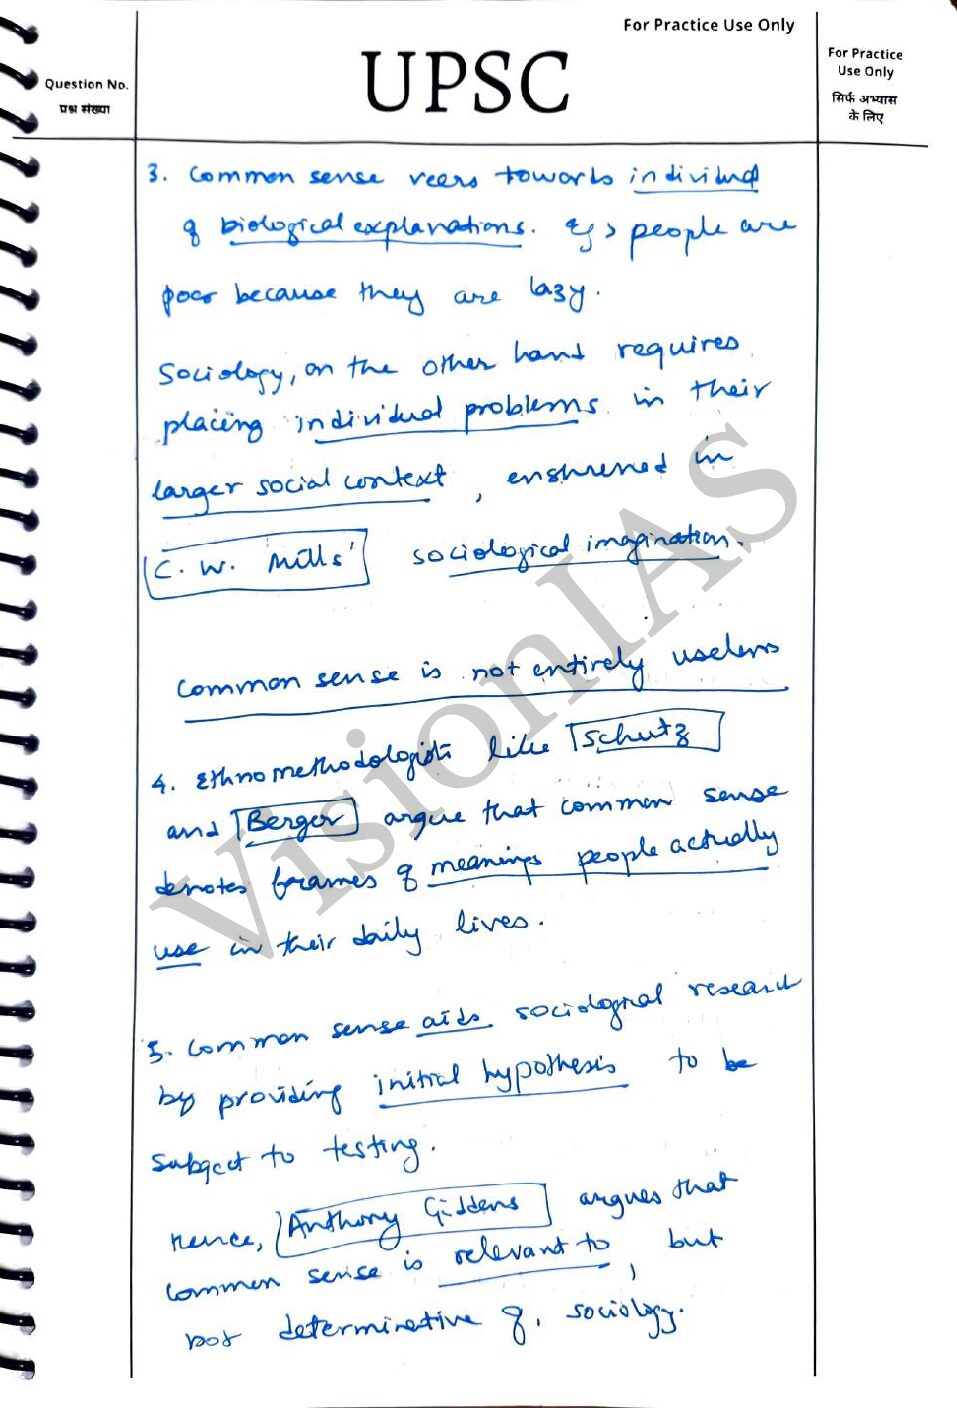 For Practice Use Only
UPSC
Question No.
प्रश्न संख्या
For Practice
Use Only
सिर्फ अभ्यास
के लिए
3. Common sense veers towards individual
& biological explanations. Eg > people are
poor because they are lazy.
Sociology, on the other hand requires
placing individual problems in their
larger social context, enshrined in
C. W. Mills' sociological imagination.
Common sense is not entirely useless
4. Ethnomethodologists like Schutz
and Berger argue that common sense
denotes frames of meanings people actually
use in their daily lives.
5. Common sense aids sociological research
by providing initial hypothesis to be
subject to testing.
Hence, Anthony Giddens argues that
common sense is relevant to, but
not determinative of, sociology.
VisionIAS